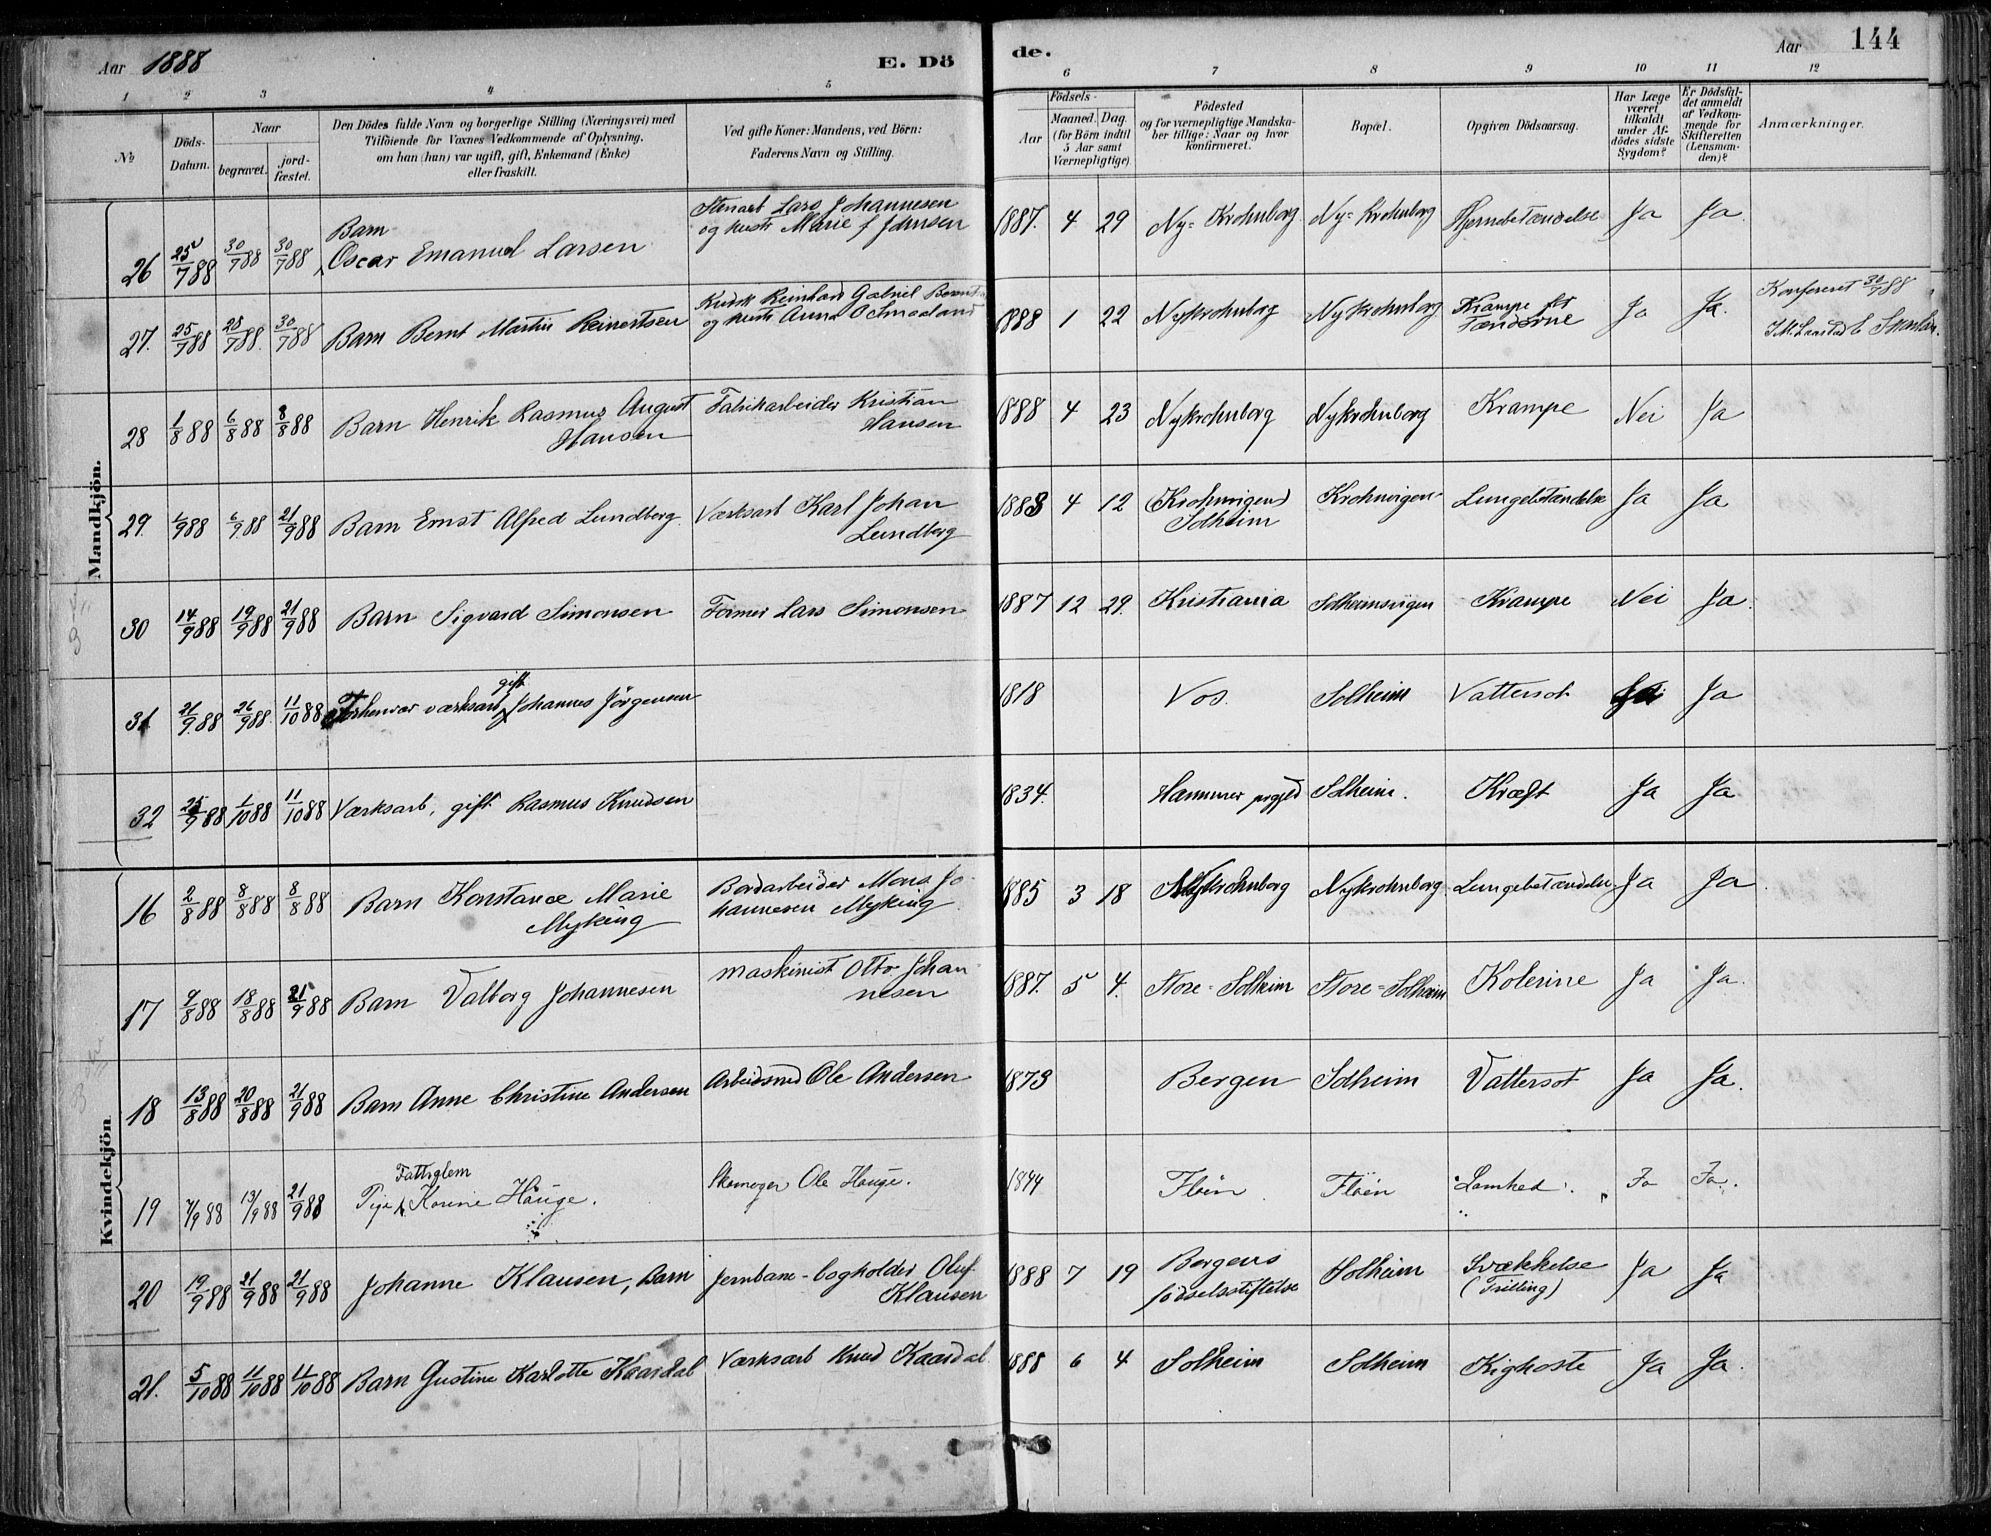 Aar 1888 E. Dö
de. Aar 144
1 2 3 4 5
6 7 8 9 10 11 12
№
Döds-
Datum.
Naar
begravet.
jord-
fæstet.
Den Dödes fulde Navn og borgerlige Stilling (Næringsvei) med
Tilföiende for Voxnes Vedkommende af Oplysning,
om han (hun) var ugift, gift, Enkemand (Enke)
eller fraskilt.
Ved gifte Koner: Mandens, ved Börn:
Faderens Navn og Stilling.
Födsels-
Aar
Maaned.
Dag.
(for Börn indtil
5 Aar samt
Værnepligtige)
Födested
og for værnepligtige Mandska-
ber tillige: Naar og hvor
konfirmeret.
Bopæl.
Opgiven Dödsaarsag.
Har Læge
været
tilkaldt
under Af-
dödes sidste
Sygdom?
Er Dödsfal-
det anmeldt
af Vedkom-
mende for
Skifteretten
(Lensman-
den)?
Anmærkninger.
Mandkjön.
26 25/7 88 30/7 88 30/7 88 Barn Oscar Emanuel Larsen
Stenarb Lars Johannesen
og hustr Marie f Jörnsen
1887. 4 29 Ny=Krohnborg Ny=Krohnborg Hjernebetændelse Ja Ja
27. 25/7 88 28/7 88 30/7 88 Barn Bernt Martin Reinertsen
Kudsk Reinhard Gabriel Bernts
og hustr Anna
1888 1 22 Nykrohnborg Nykrohnborg Krampe
Tænderne Ja Ja.
Konfereret 30/7 88
28 1/8 88 6/8 88 8/8 88 Barn Henrik Rasmus August
Hansen
Fabrikarbeider Kristian
Hansen
1888 4 23 Nykrohnborg Nykrohnborg Krampe Nei Ja
29. 1/9 88 6/9 88 21/9 88 Barn Ernst Alfred Lundberg
Værksarb Karl Johan
Lundberg
1888 4 12 (Krohnvigen)
Solheim
Krohnvigen Lungebetændelse Ja Ja
30 14/9 88 19/9 88 21/9 88 Barn Sigvard Simonsen Former Lars Simonsen
1887 12 29. Kristiania Solheimsvigen Krampe Nei Ja.
31 21/9 88 26/9 88 11/10 88 Forhenvær værksarb gift Johannes Jörgensen
1818 Vos. Solheim Vattersot Ja
32 25/9 88 1/10 88 11/10 88 Værksarb, gift Rasmus Knudsen
1834. Hammer prgjld Solheim. Kræft Ja Ja
Kvindekjön
16 2/8 88 8/8 88 8/8 88 Barn Konstance Marie
Myking
Bordarbeider Mons Jo-
hannesen Myking
1885 3 18 Nykrohnborg Nykrohnborg Lungebetændelse Ja Ja.
17 9/8 88 18/8 88 21/9 88 Barn Valborg Johannesen
Maskinist Otto Johan-
nesen
1887. 5 4. Store=Solheim Store=Solheim Kolerine Ja Ja.
18 13/8 88 20/8 88 21/9 88 Barn Anne Christine Andersen Arbeidsmd Ole Andersen
1873 Bergen Solheim Vattersot Ja Ja.
19 7/9 88 13/9 88 21/9 88 Pige Fattiglem Korine Hauge. Skomager Ole Hauge.
1844 Flöen Flöen Lamhed. Ja Ja.
20 19/9 88 21/9 88 21/9 88 Johanne Klausen, Barn
Jernbane-bogholder Oluf
Klausen
1888 7 19 Bergens
födselsstiftelse
Solheim Svækkelse
(Trilling) Ja Ja
21. 5/10 88 11/10 88 11/10 88 Barn Gustine Karlotte Kaardal Værksarb Knud Kaardal
1888 6 4 Solheim Solheim Kighoste Ja Ja.